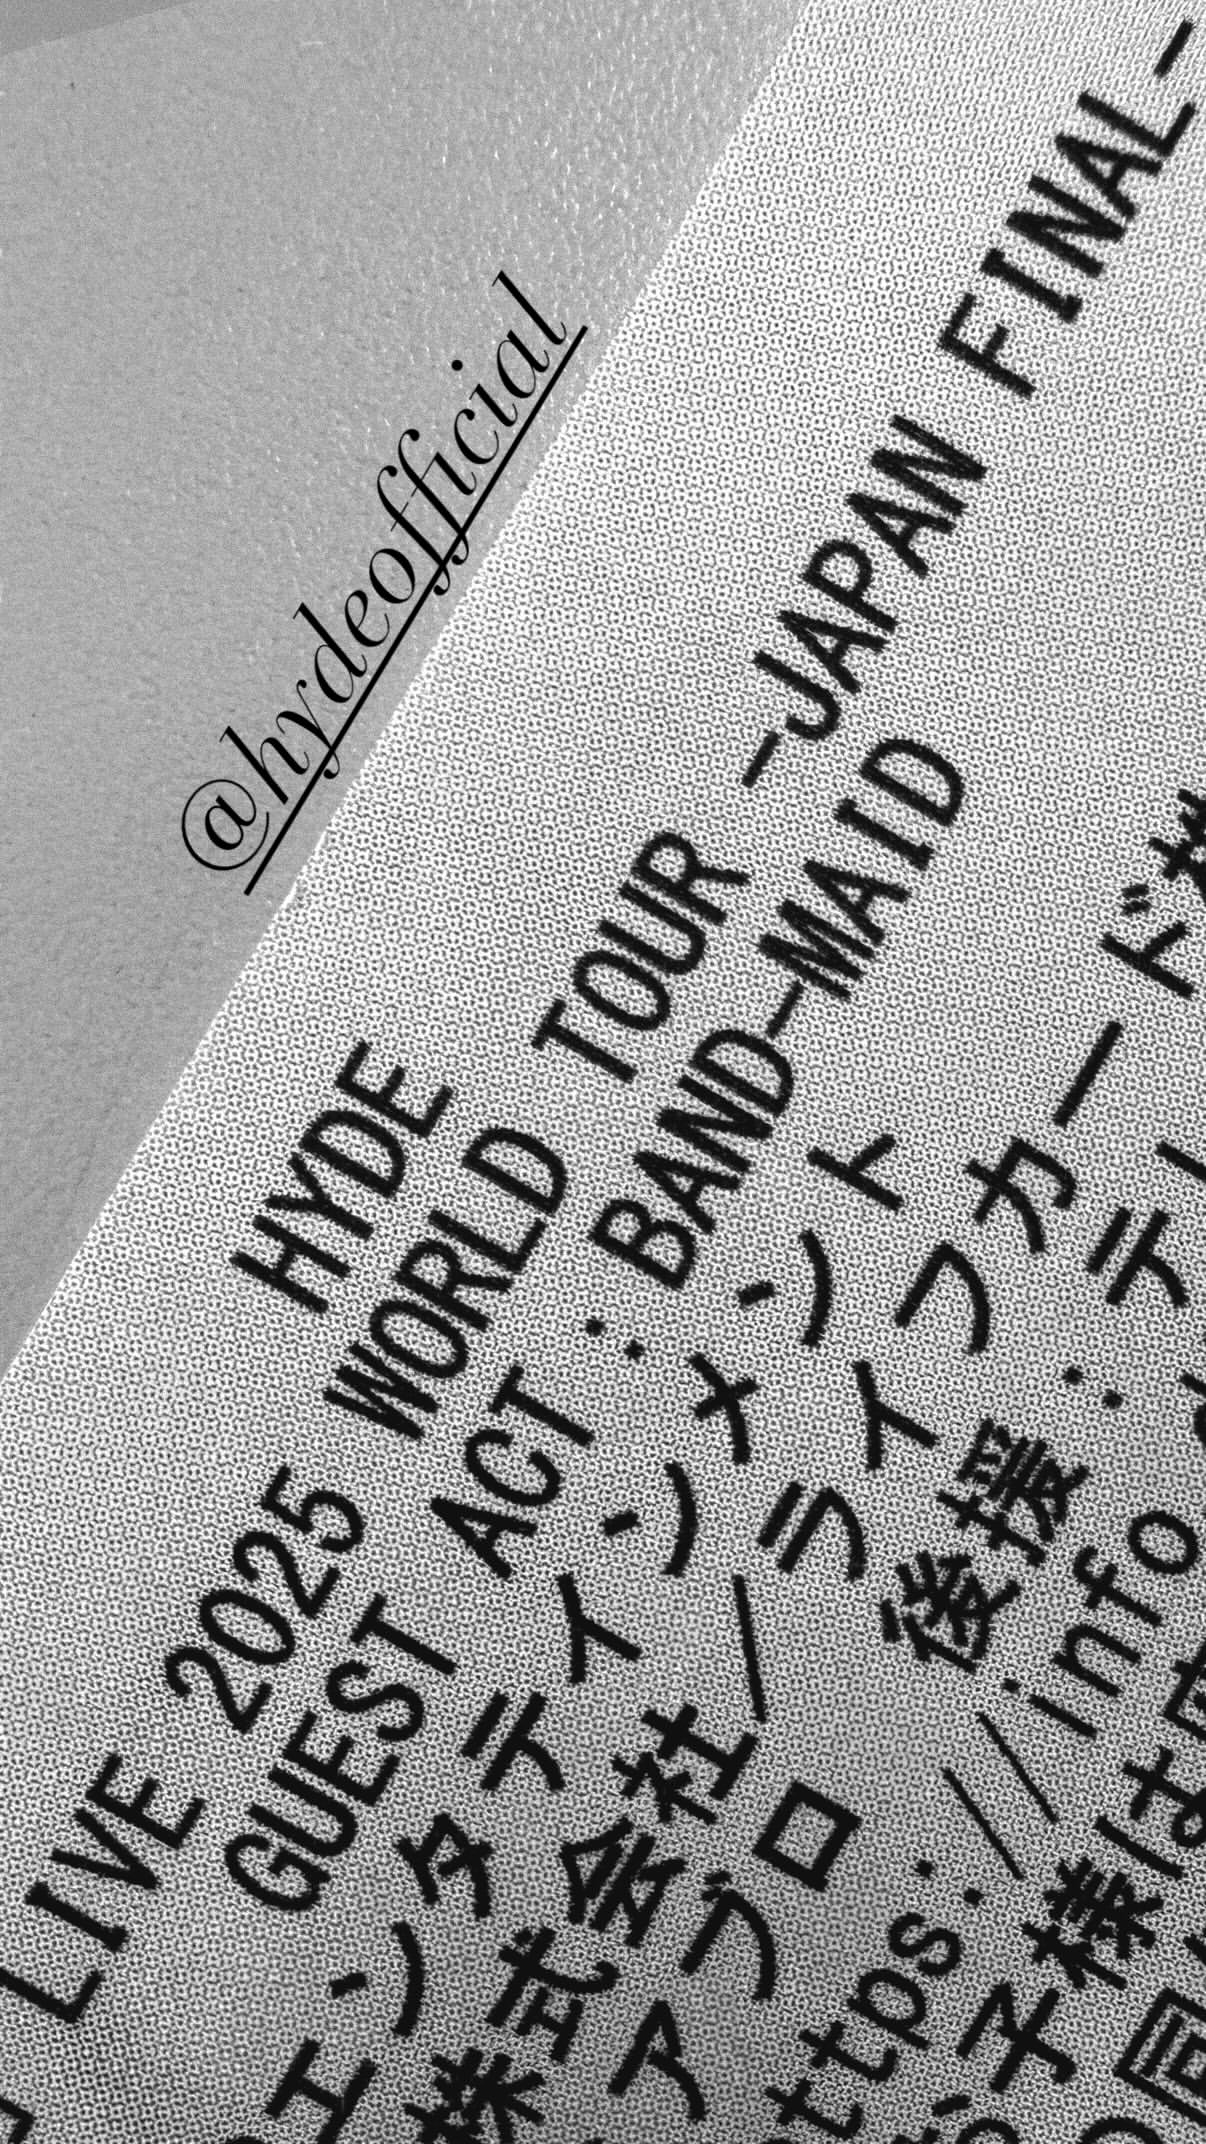 HYDE
LIVE 2025 WORLD TOUR -JAPAN FINAL-
GUEST ACT : BAND-MAID
エンタテインメント
株式会社／ライフカード
アブロ 後援：テ
ttps://info
子様は
@hydeofficial